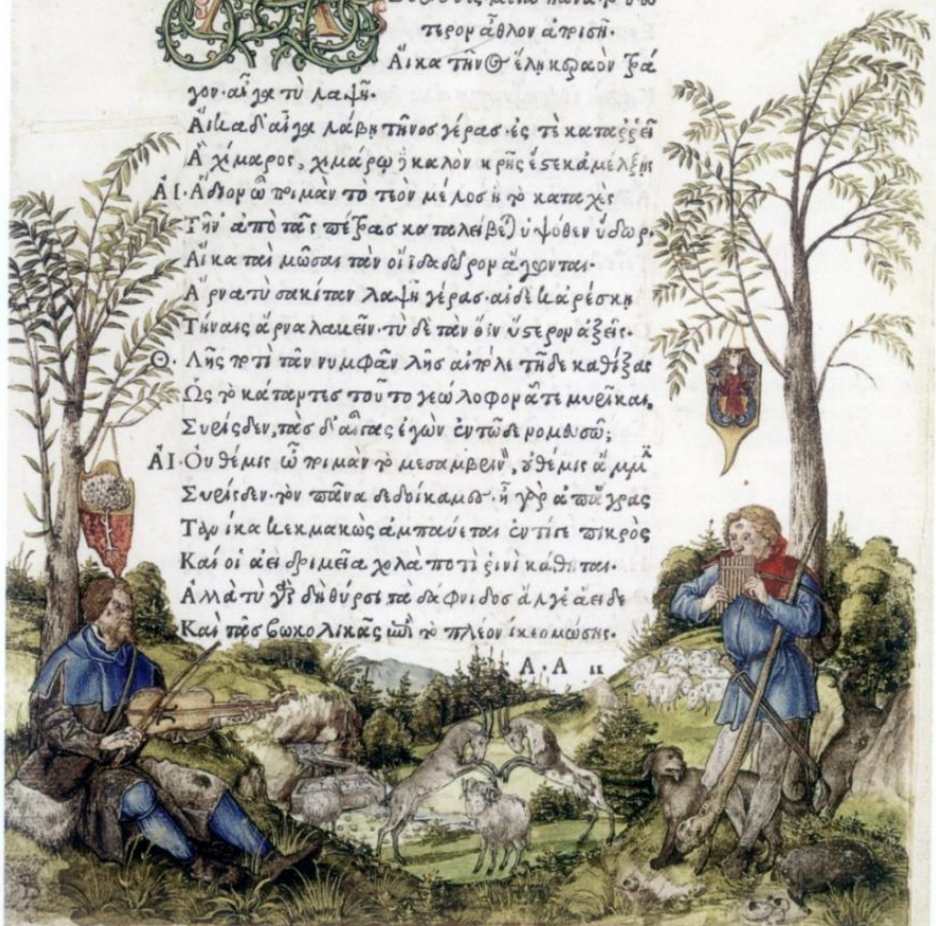 μετὰ πᾶνα τὸ δεύ
τερον ἆθλον ἀποισῇ.
Αἴκα τῆνος ἕλῃ κεραὸν τρά
γον· αἶγα τὺ λαψῇ.
Αἴκα δ' αἶγα λάβῃ τῆνος γέρας· ἐς τὲ καταῤῥεῖ
Ἁ χίμαρος, χιμάρῳ δὲ καλὸν κρῆς ἔστε κ' ἀμέλξῃς
ΑΙ. Ἅδιον ὦ ποιμὰν τὸ τεὸν μέλος ἢ τὸ καταχὲς
Τῆν' ἀπὸ τᾶς πέτρας καταλείβεται ὑψόθεν ὕδωρ.
Αἴκα ταὶ μῶσαι τὰν οἴϊδα δῶρον ἄγωνται.
Ἄρνα τὺ σακίταν λαψῇ γέρας· αἰ δέ κ' ἀρέσκῃ
Τήναις ἄρνα λαβεῖν· τὺ δὲ τὰν ὄϊν ὕστερον ἀξεῖς.
Θ. Λῇς ποτὶ τᾶν νυμφᾶν λῇς αἰπόλε τῇδε καθίξας
Ὡς τὸ κάταντες τοῦτο γεώλοφον ἅτε μυρῖκαι,
Συρίσδεν, τὰς δ' αἶγας ἐγὼν ἐν τῷδε νομευσῶ;
ΑΙ. Οὐ θέμις ὦ ποιμὰν τὸ μεσαμβρινὸν, οὐ θέμις ἄμμιν
Συρίσδεν· τὸν πᾶνα δεδοίκαμες· ἦ γὰρ ἀπ' ἄγρας
Τανίκα κεκμακὼς ἀμπαύεται ἐντί γε πικρὸς
Καί οἱ ἀεὶ δριμεῖα χολὰ ποτὶ ῥινὶ κάθηται.
Ἀλλὰ τὺ γὰρ δὴ θύρσι τὰ δάφνιδος ἄλγε ἄειδες
Καὶ τᾶς βωκολικᾶς ἐπὶ τὸ πλέον ἵκεο μώσης.
A. A ii